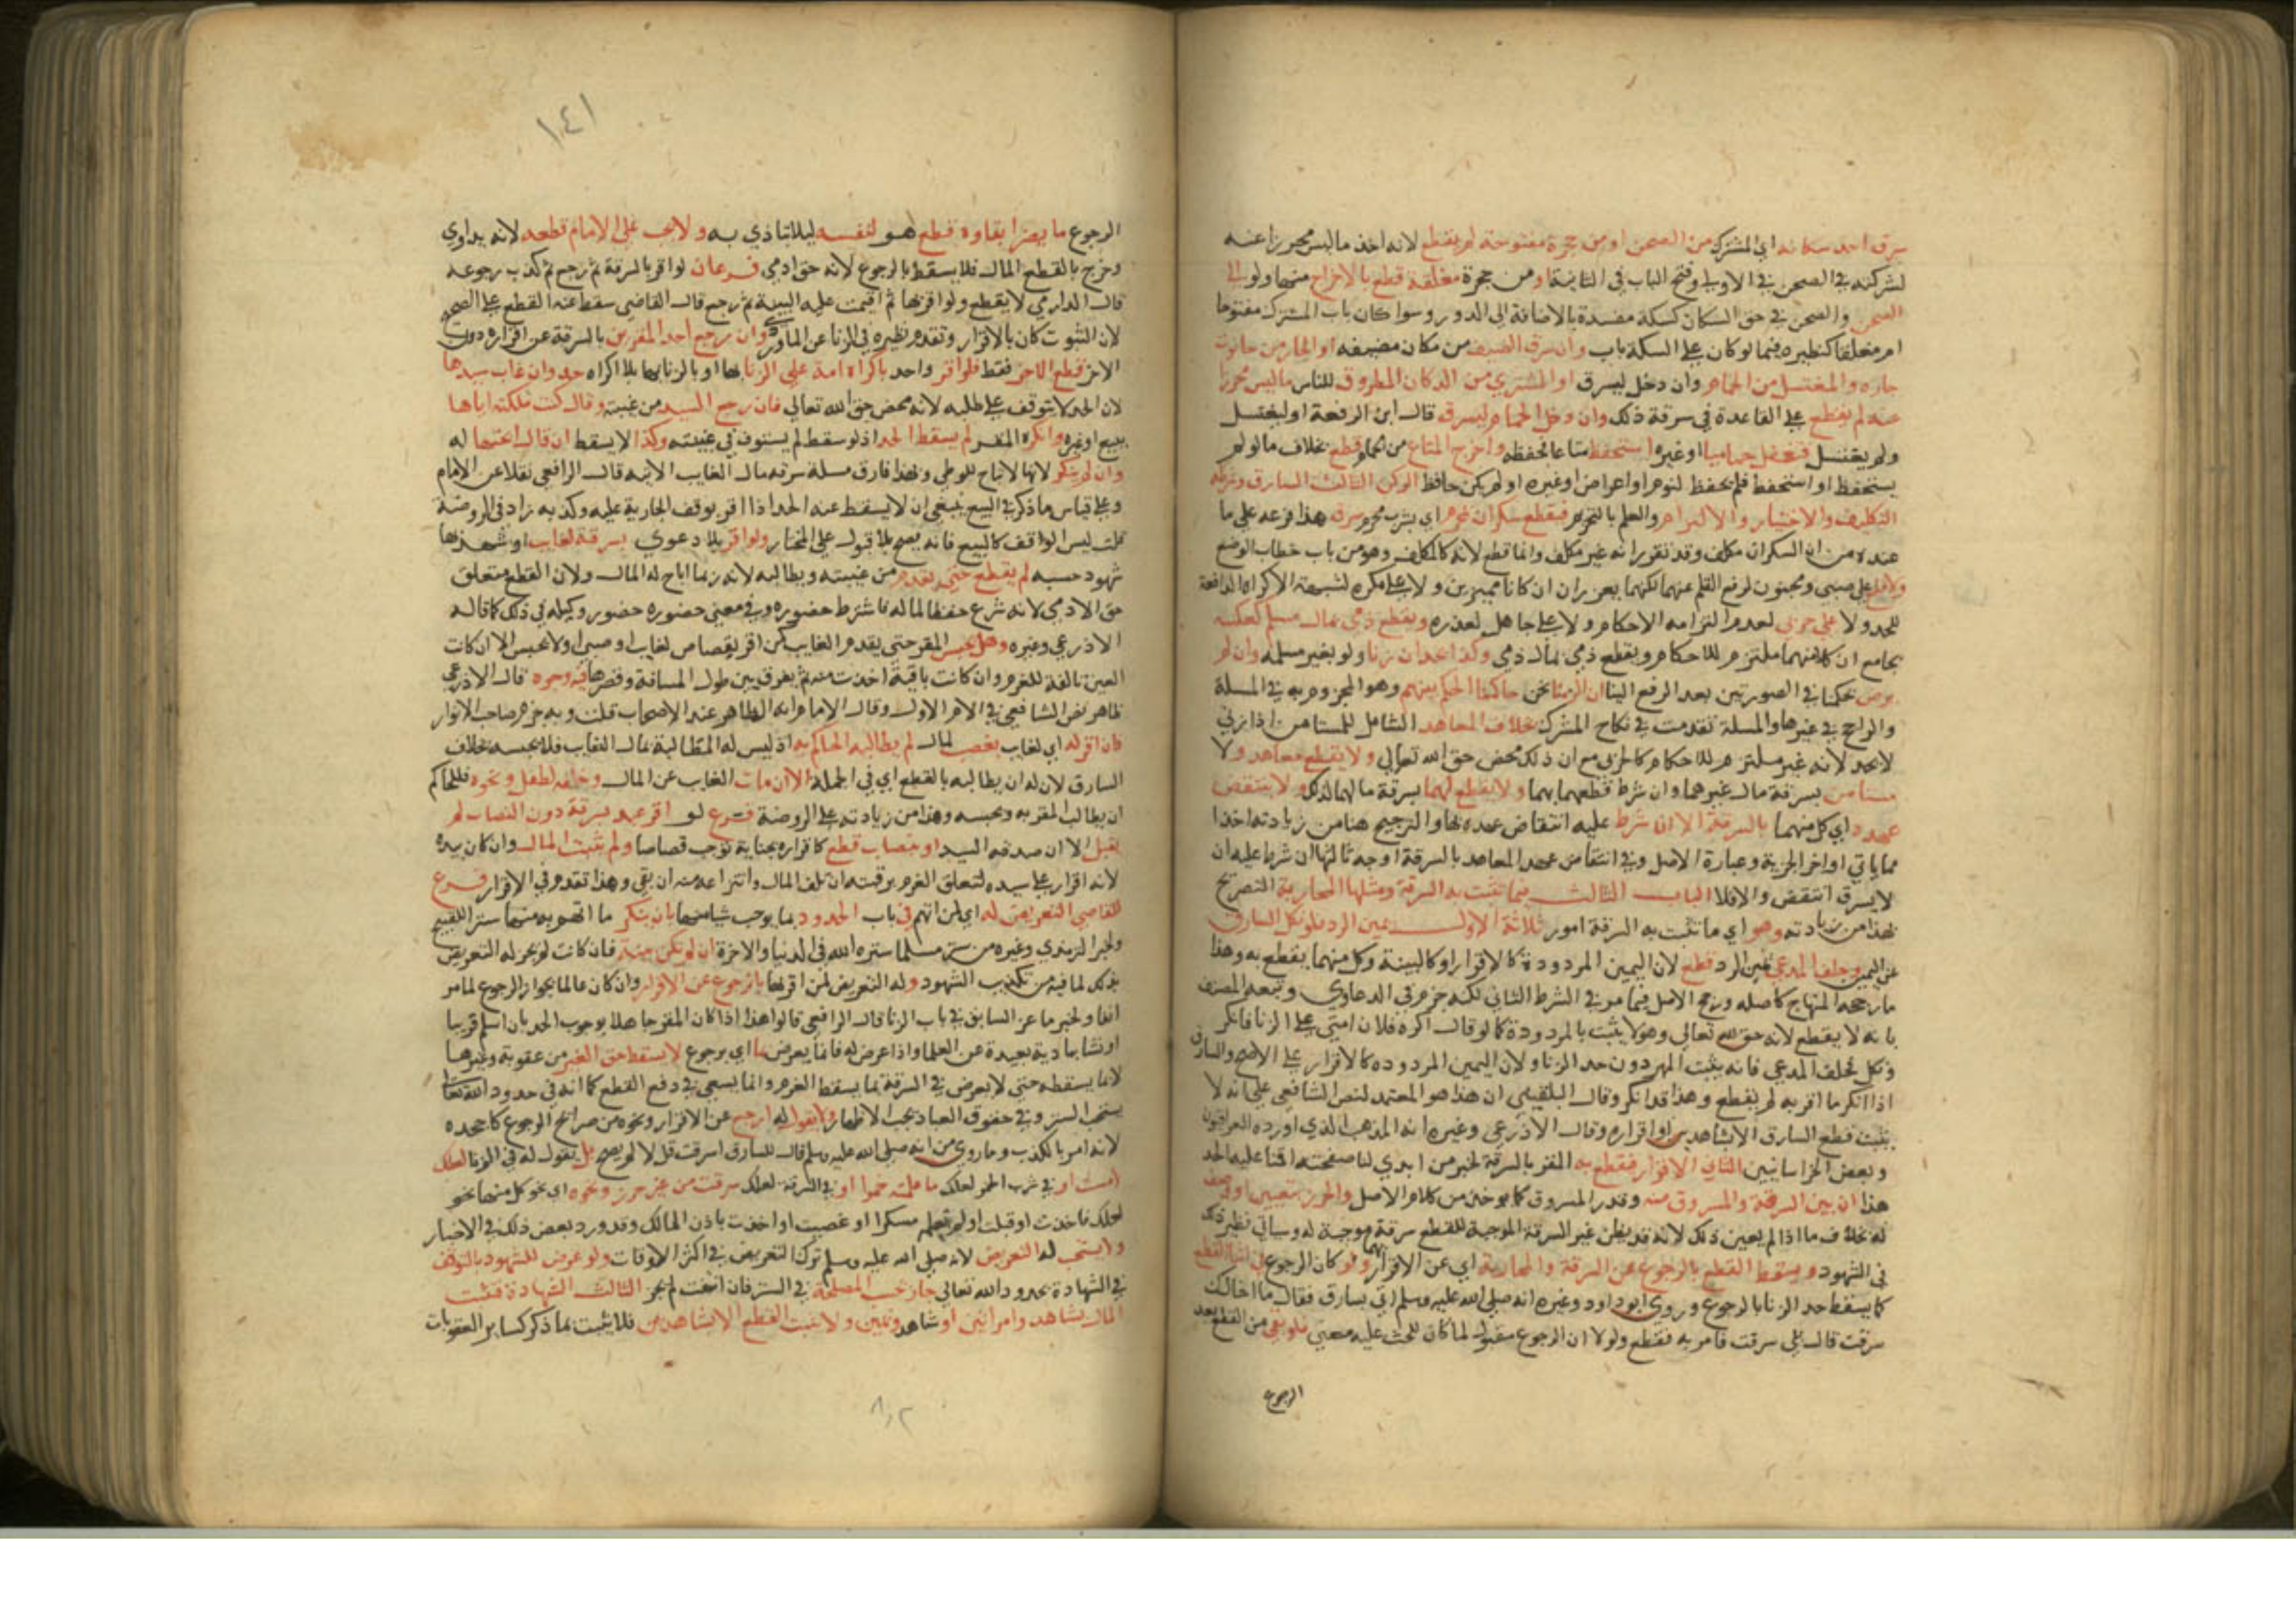 سرق احد سكانه اي المشترك من الصحن او من حجرة مفتوحة لم يقطع لانه اخذ ما ليس محرزا عنه
لشركته في الصحن في الاولي وفتح الباب في الثانية او من حجرة مغلقة قطع بالاخراج منها ولو الي
الصحن والصحن في حق السكان كسكة منسدة بالاضافة الي الدور وسوا كان باب المشترك مفتوحا
ام مغلقا كنظيره فيما لو كان علي السكة باب وان سرق الضيف من مكان مضيفه او الجار من حانوت
جاره والمغتسل من الحمام وان دخل ليسرق او المشتري من الدكان المطروق للناس ما ليس محرزا
عنه لم يقطع علي القاعدة في سرقة ذلك وان دخل الحمام ليسرق قال ابن الرفعة او ليغتسل
ولم يغتسل فتغفل حماميا او غيره استحفظ متاعا فحفظه واخرج المتاع من الحمام قطع بخلاف ما لو لم
يستحفظ او استحفظ فلم يحفظ لنوم او اعراض او غيره او لم يكن حافظ الركن الثالث السارق وشرطه
التكليف والاختيار والالتزام والعلم بالتحريم فيقطع سكران محرم اي بشرب محرم سرق هذا فرعه علي ما
عنده من ان السكران مكلف وقد تقرر انه غير مكلف وانما قطع لانه كالمكلف وهو من باب خطاب الوضع
ولا قطع علي صبي ومجنون لرفع القلم عنهما لكنهما يعزران ان كانا مميزين ولا علي مكره لشبهة الاكراه الدافعة
للحد ولا علي حربي لعدم التزامه الاحكام ولا علي جاهل لعذره ويقطع ذمي بمال مسلم كعكسه
بجامع ان كلا منهما ملتزم للاحكام ويقطع ذمي بمال ذمي وكذا احد ان زنا ولو بغير مسلمة وان لم
يرض بحكمنا في الصورتين بعد الرفع الينا ان الزمنا نحن حاكمنا الحكم بينهم وهو المجزوم به في المسلة
والراجح في غيرها والمسلة تقدمت في نكاح المشرك بخلاف المعاهد الشامل للمستامن اذا زني
لا يحد لانه غير ملتزم للاحكام كالحربي مع ان ذلك محض حق الله تعالي ولا يقطع معاهد ولا
مستامن بسرقة مال غيرهما وان شرط قطعهما بها ولا يقطع لهما بسرقة مالهما لذلك ولا ينتقض
عهده اي كل منهما بالسرقة الا ان شرط عليه انتقاض عهده بها والترجيح هنا من زيادته اخذا
مما ياتي اواخر الجزية وعبارة الاصل وفي انتقاض عهد المعاهد بالسرقة اوجه ثالثها ان شرط عليه ان
لا يسرق انتقض والا فلا الباب الثالث فيما تثبت به السرقة ومثلها المحاربة التصريح
بهذا من زيادته وهو اي ما تثبت به السرقة امور ثلاثة الاول يمين الرد فلو نكل السارق
عن اليمين وحلف المدعي يمين الرد قطع لان اليمين المردودة كالاقرار او كالبينة وكل منهما يقطع به وهذا
ما رجحه المنهاج كاصله ورجح الاصل فيما مر في الشرط الثاني لكنه جزم في الدعاوي وتبعه المصنف
بانه لا يقطع لانه حق لله تعالي وهو لا يثبت بالمردودة كما لو قال اكره فلان امتي علي الزنا فانكر
ونكل فحلف المدعي فانه يثبت المهر دون حد الزنا ولان اليمين المردوده كالاقرار علي الاصح والسارق
اذا انكر ما اقر به لم يقطع وهذا قد انكر وقال البلقيني ان هذا هو المعتمد لنص الشافعي علي انه لا
يثبت قطع السارق الا بشاهدين او اقراره وقال الاذرعي وغيره انه المذهب الذي اورده العراقيون
وبعض الخراسانيين الثاني الاقرار فيقطع به المقر بالسرقة لخبر من ابدي لنا صفحته اقمنا عليه الحد
هذا ان بين السرقة والمسروق منه وقدر المسروق كما يوخذ من كلام الاصل والحرز بتعيين او وصف
له بخلاف ما اذا لم يعين ذلك لانه قد يظن غير السرقة الموجبة للقطع سرقة موجبة له وسياتي نظير ذلك
في الشهود ويسقط القطع بالرجوع عن السرقة والمحاربة اي عن الاقرار بهما ولو كان الرجوع في اثنا القطع
كما يسقط حد الزنا بالرجوع وروي ابو داود وغيره انه صلي الله عليه وسلم اتي بسارق فقال ما اخالك
سرقت قال بلي سرقت فامر به فقطع ولولا ان الرجوع مقبول لما كان للحث عليه معني فلو بقي من القطع بعد
الرجوع
١٤١
الرجوع ما يضر ابقاوه قطع هو لنفسه ليلا يتاذي به ولا يجب علي الامام قطعه لانه يداوي
وخرج بالقطع المال فلا يسقط بالرجوع لانه حق ادمي فرعان لو اقر بالسرقة ثم رجع ثم كذب رجوعه
قال الدارمي لا يقطع ولو اقر بها ثم اقيمت عليه البينة ثم رجع قال القاضي سقط عنه القطع علي الصحيح
لان الثبوت كان بالاقرار وتقدم نظيره في الزنا عن الماوردي وان رجع احد المقرين بالسرقة عن اقراره دون
الاخر قطع الاخر فقط فلو اقر واحد باكراه امة علي الزنا بها او بالزنا بها بلا اكراه حد وان غاب سيدها
لان الحد لا يتوقف علي طلبه لانه محض حق الله تعالي فان رجع السيد من غيبته وقال كنت ملكته اياها
ببيع او غيره وانكره المقر لم يسقط الحد اذ لو سقط لم يستوف في غيبته وكذا لا يسقط ان قال ابحتها له
وان لم ينكر لانها لا تباح للوطي وبهذا فارق مسلة سرقة مال الغايب الاتية قال الرافعي نقلا عن الامام
وعلي قياس ما ذكر في البيع ينبغي ان لا يسقط عنه الحد اذا اقر بوقف الجارية عليه وكذبه زاد في الروضة
قلت ليس الوقف كالبيع فانه يصح بلا قبول علي المختار ولو اقر بلا دعوي بسرقة لغايب او شهد بها
شهود حسبه لم يقطع حتي يقدم من غيبته ويطالبه لانه ربما اباح له المال ولان القطع متعلق
حق الادمي لانه شرع حفظا لماله فاشترط حضوره وفي معني حضوره حضور وكيله في ذلك كما قاله
الاذرعي وغيره وهل يحبس المقر حتي يقدم الغايب كمن اقر بقصاص لغايب او صبي او لا يحبس الا ان كانت
العين تالفة للغرم وان كانت باقية اخذت منه ثم يفرق بين طول المسافة وقصرها فيه وجوه قال الاذرعي
ظاهر نص الشافعي في الام الاول وقال الامام انه الظاهر عند الاصحاب قلت وبه جزم صاحب الانوار
فان اقر له اي لغايب بغصب لمال لم يطالبه الحاكم به اذ ليس له المطالبة بمال الغايب فلا يحبسه بخلاف
السارق لان له ان يطالبه بالقطع اي في الجملة الا ان مات الغايب عن المال وخلفه لطفل ونحوه فللحاكم
ان يطالب المقر به ويحبسه وهذا من زيادته علي الروضة فرع لو اقر عبد بسرقة دون النصاب لم
يقبل الا ان صدقه السيد او بنصاب قطع كاقراره بجناية توجب قصاصا ولم يثبت المال وان كان بيده
لانه اقرار علي سيده لتعلق الغرم برقبته ان تلف المال وانتزاعه منه ان بقي وهذا تقدم في الاقرار فرع
للقاضي التعريض له اي لمن اتهم في باب الحدود بما يوجب شيا منها بان ينكر ما اتهم به منها سترا للقبيح
ولخبر الترمذي وغيره من ستر مسلما ستره الله في الدنيا والاخرة ان لم تكن بينة فان كانت لم يجز له التعريض
بذلك لما فيه من تكذيب الشهود وله التعريض لمن اقر بها بالرجوع عن الاقرار وان كان عالما بجواز الرجوع لما مر
انفا ولخبر ماعز السابق في باب الزنا قال الرافعي قالوا هذا اذا كان المقر جاهلا بوجوب الحد بان اسلم قريبا
او نشا ببادية بعيدة عن العلما واذا عرض له فانما يعرض بما اي برجوع لا يسقط حق الغير من عقوبة وغيرها
لا بما يسقطه حتي لا يعرض في السرقة بما يسقط الغرم وانما يسعي في دفع القطع كما انه في حدود الله تعالي
يستحب الستر وفي حقوق العباد يجب الاظهار ولا يقول له ارجع عن الاقرار ونحوه من صرائح الرجوع كاجحده
لانه امر بالكذب وما روي من انه صلي الله عليه وسلم قال للسارق اسرقت قل لا لم يصح بل يقول له في الزنا لعلك
لمست او في شرب الخمر لعلك ما علمته خمرا او في السرقة لعلك سرقت من غير حرز ونحوه اي نحو كل منها نحو
لعلك فاخذت او قبلت او لم تعلمه مسكرا او غصبت او اخذت باذن المالك وقد ورد بعض ذلك في الاخبار
ولا يستحب له التعريض لانه صلي الله عليه وسلم ترك التعريض في اكثر الاوقات ولو عرض للشهود بالتوقف
في الشهادة بحدود الله تعالي جاز بحسب المصلحة في الستر فان انتفت لم يجز الثالث الشهادة فيثبت
المال بشاهد وامراتين او شاهد ويمين ولا يثبت القطع الا بشاهدين فلا يثبت بما ذكر كساير العقوبات